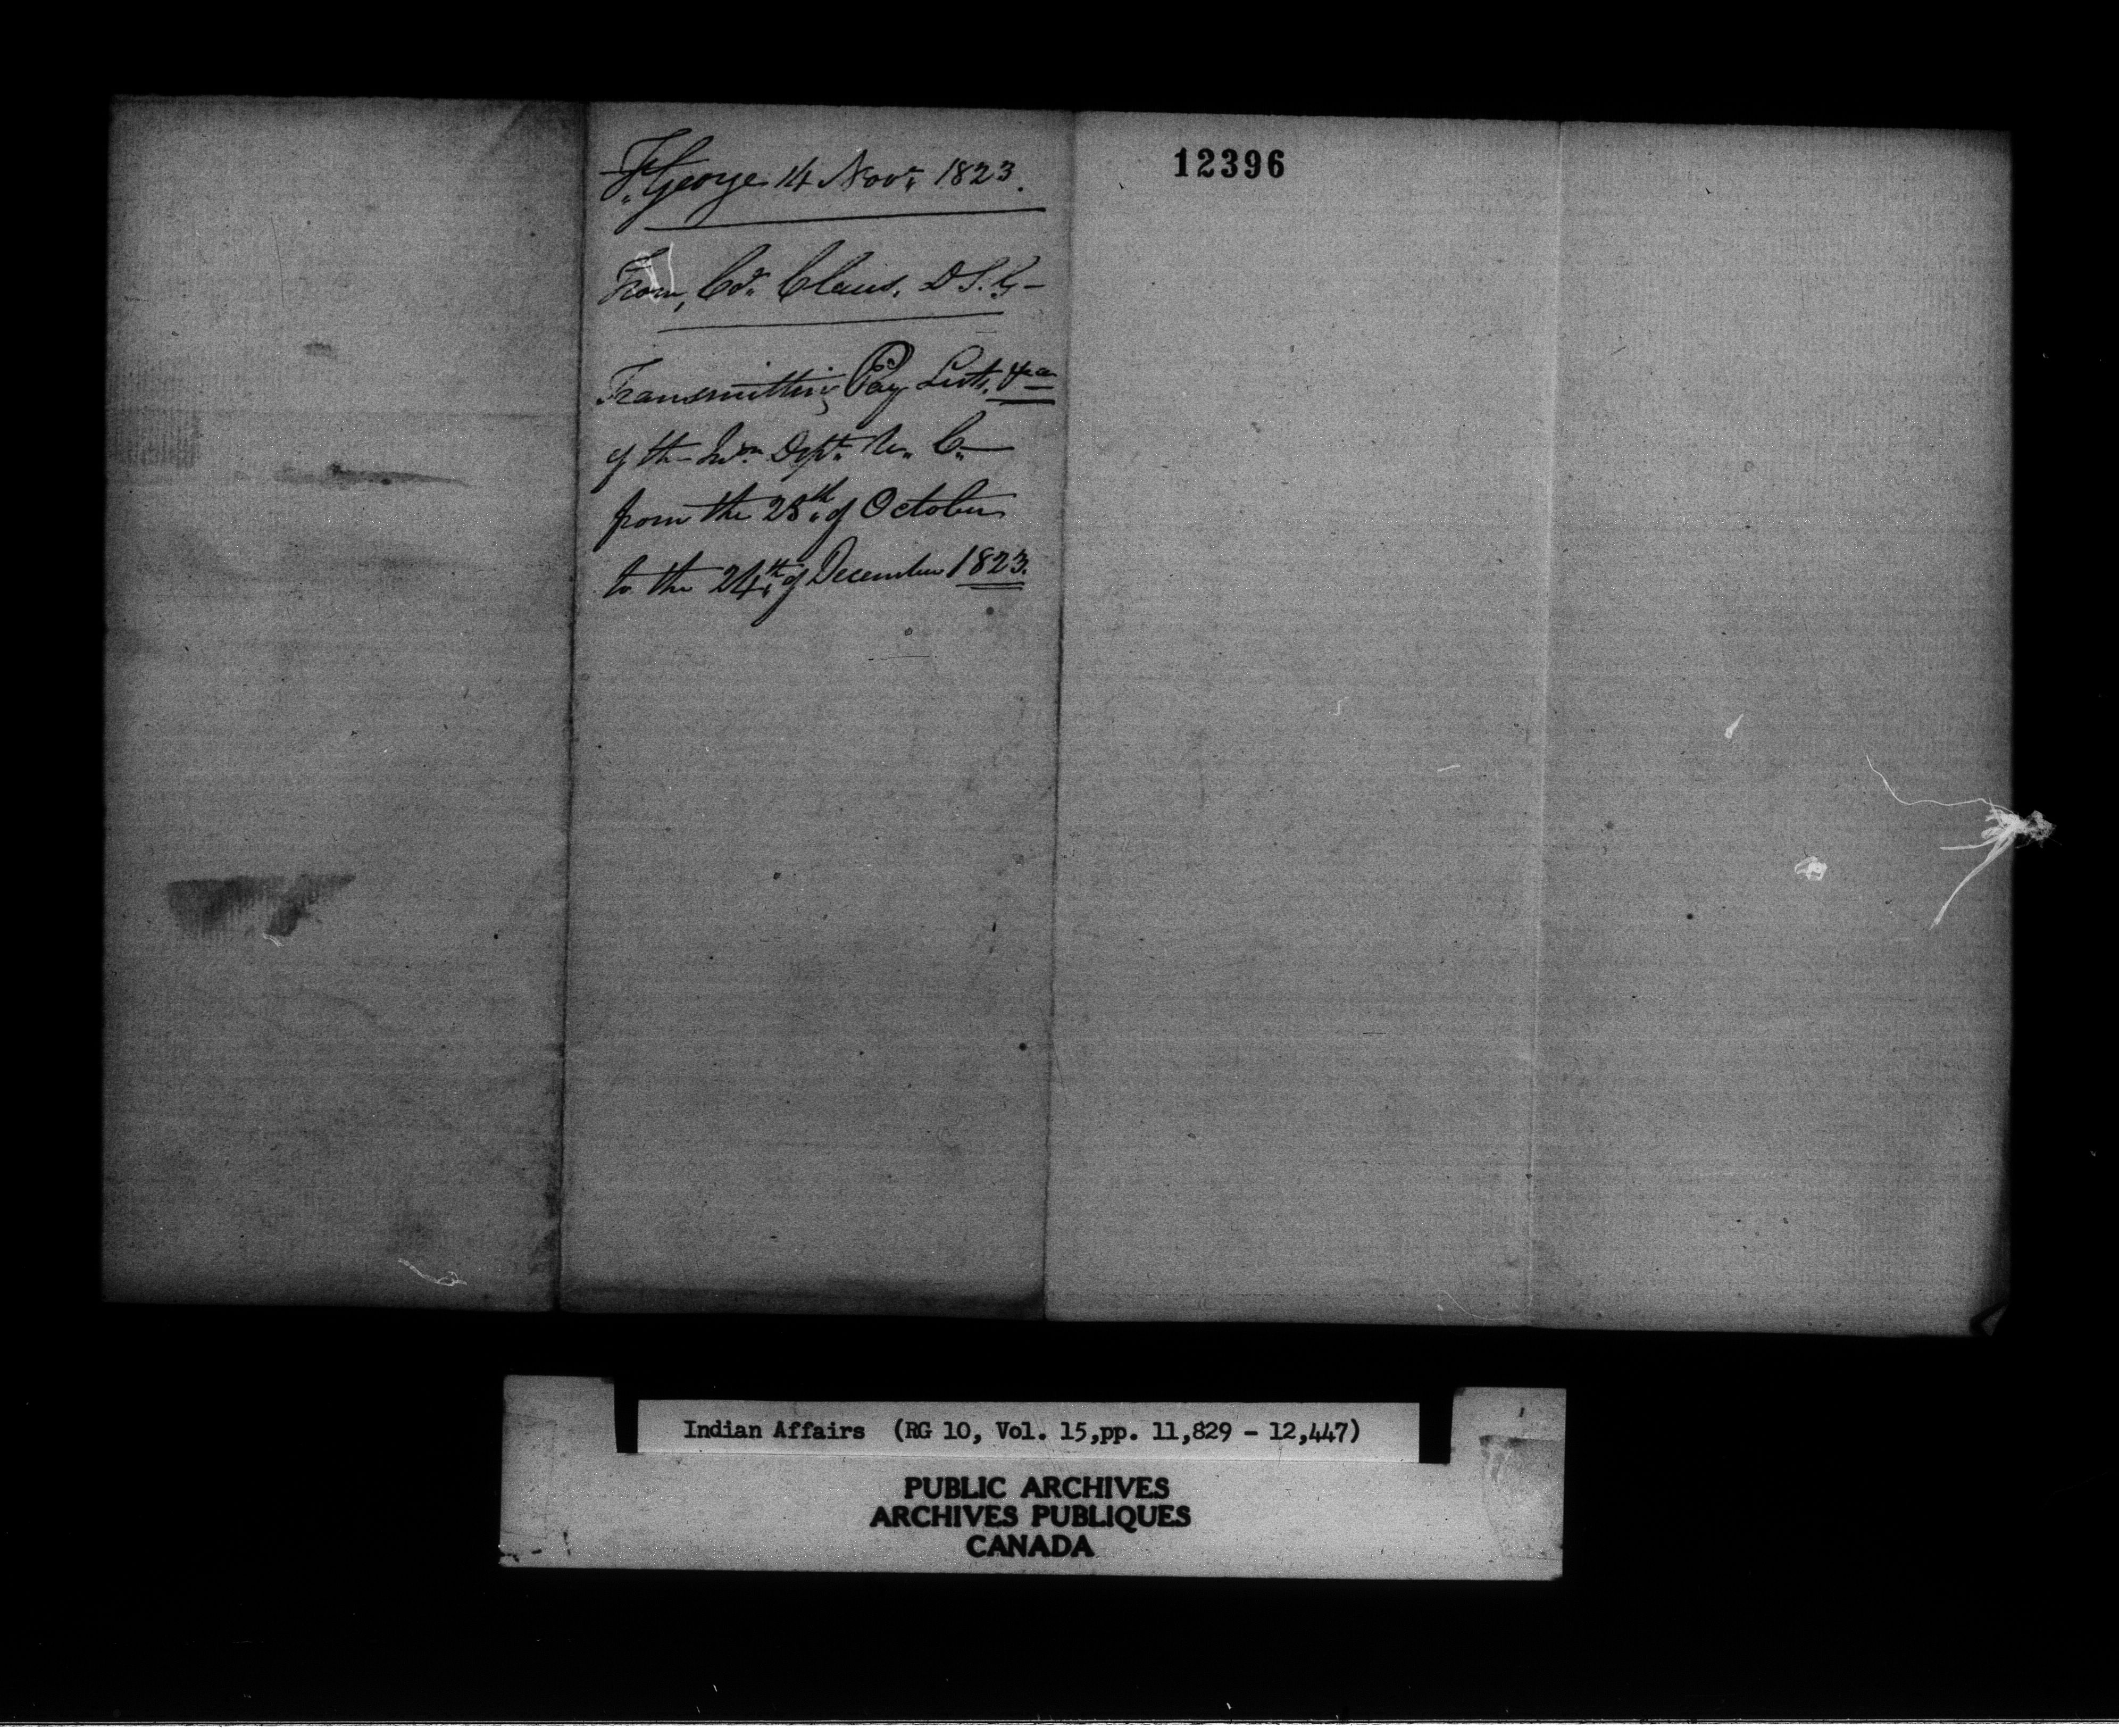 Ft. George 14 Novr. 1823.
From, Col. Claus. D S. G -
Transmitting Pay Lists, &ca
of the Indn. Dept. U. C.
from the 25th. of October
to the 24th. of December 1823.
12396
Indian Affairs (RG 10, Vol. 15,pp. 11,829 - 12,447)
PUBLIC ARCHIVES
ARCHIVES PUBLIQUES
CANADA